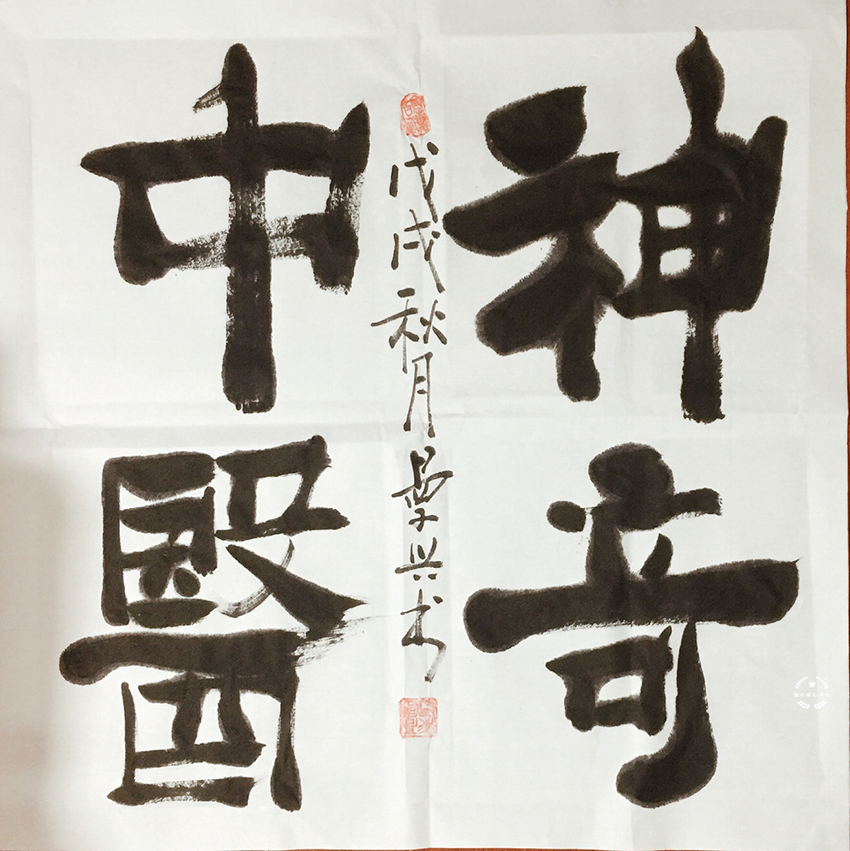 神奇
中醫
戊戌秋月兴书